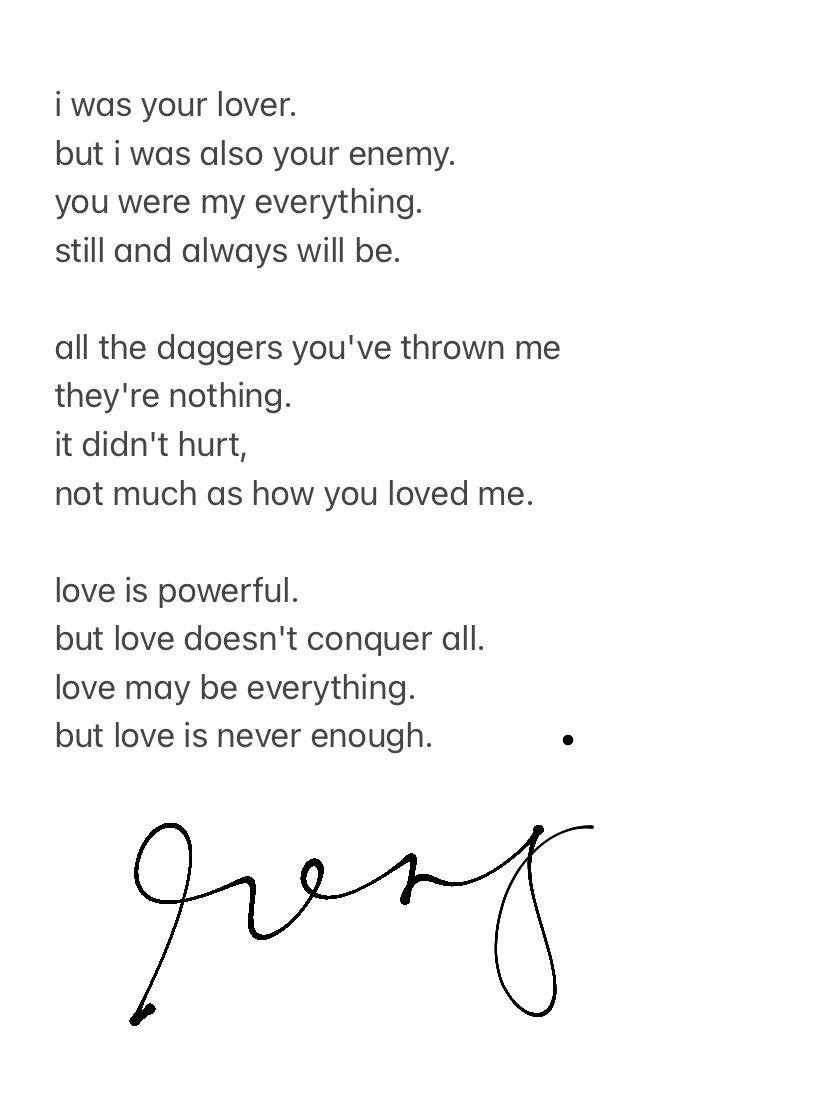 i was your lover.
but i was also your enemy.
you were my everything.
still and always will be.
all the daggers you've thrown me
they're nothing.
it didn't hurt,
not much as how you loved me.
love is powerful.
but love doesn't conquer all.
love may be everything.
but love is never enough.